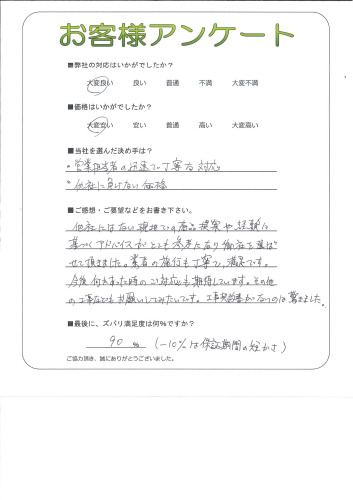 お客様アンケート
■弊社の対応はいかがでしたか？
大変良い 良い 普通 不満 大変不満
■価格はいかがでしたか？
大変安い 安い 普通 高い 大変高い
■当社を選んだ決め手は？
・営業担当者の迅速で丁寧な対応
・他社に負けない価格
■ご感想・ご要望などをお書き下さい。
他社にはない現地での商品提案や経験に
基づくアドバイスがとても参考になり御社を選ば
せて頂きました。業者の施行も丁寧で、満足です。
今後何かあった時のご対応も期待しています。その他
の工事などもお願いしてみたいです。工事完了書がないのは驚きました。
■最後に、ズバリ満足度は何%ですか？
90 % (-10%は保証期間の短かさ)
ご協力頂き、誠にありがとうございました。